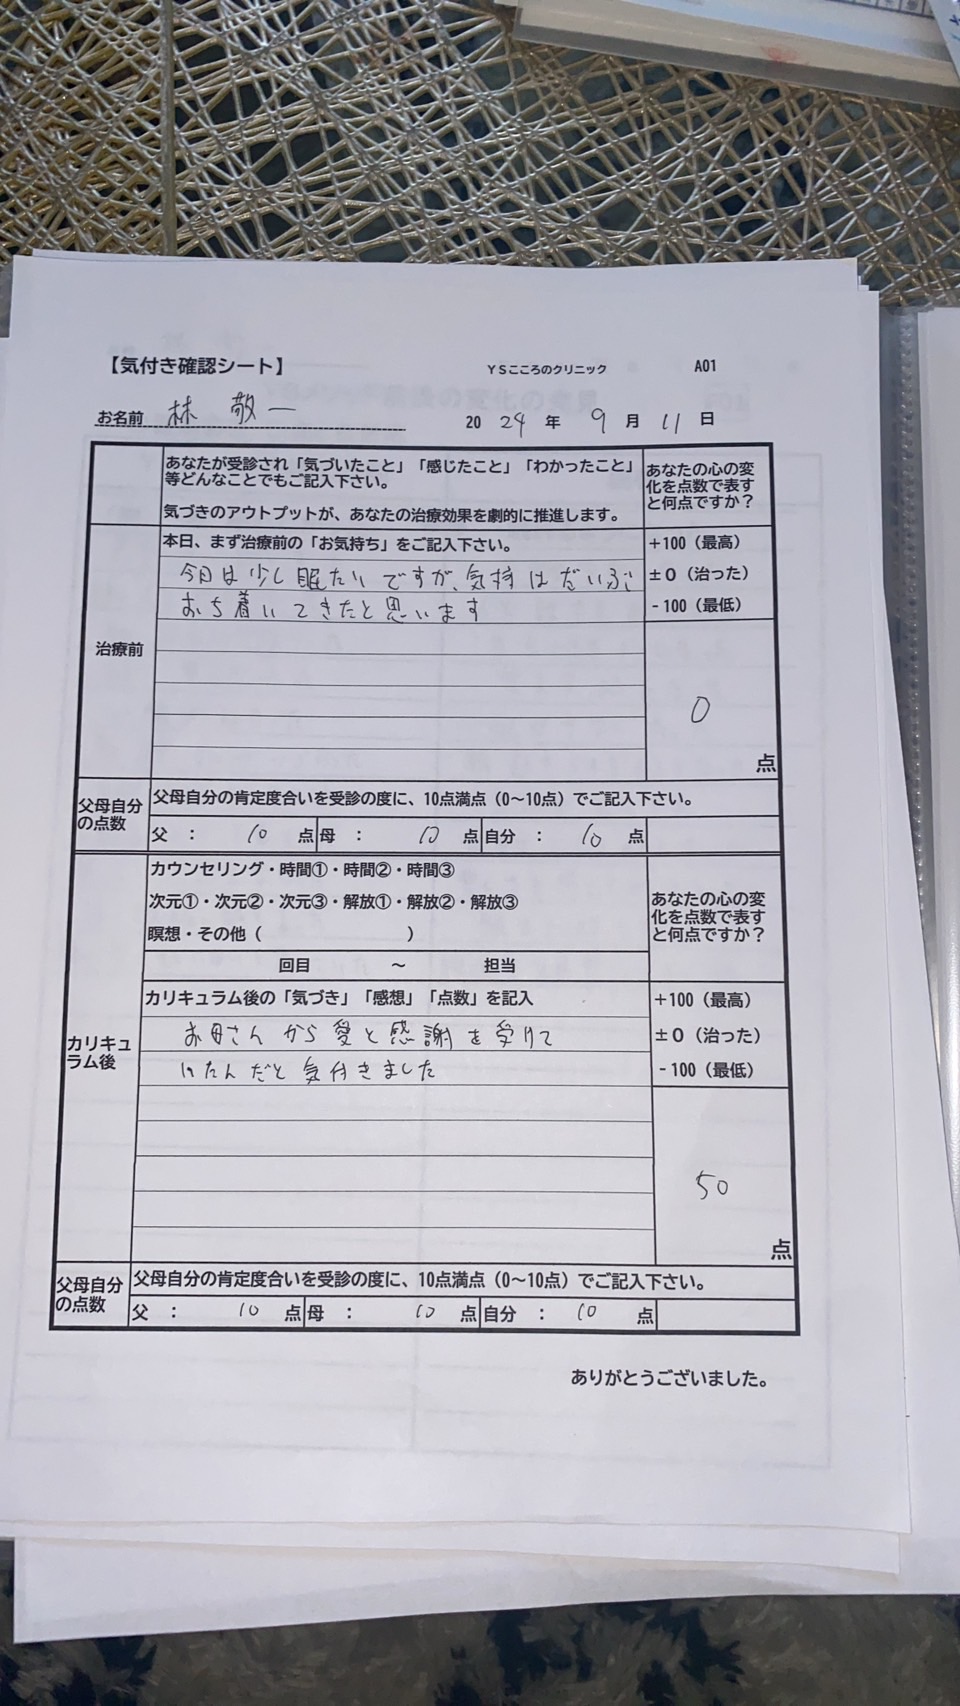 【気付き確認シート】 YSこころのクリニック A01
お名前 林 敬一 2024年 9月 11日
あなたが受診され「気づいたこと」「感じたこと」「わかったこと」
等どんなことでもご記入下さい。
気づきのアウトプットが、あなたの治療効果を劇的に推進します。
あなたの心の変
化を点数で表す
と何点ですか?
治療前
本日、まず治療前の「お気持ち」をご記入下さい。
今日は少し眠たいですが、気持はだいぶ
おち着いてきたと思います
+100(最高)
±0(治った)
-100(最低)
0
点
父母自分
の点数
父母自分の肯定度合いを受診の度に、10点満点(0~10点)でご記入下さい。
父 : 10 点 母 : 10 点 自分 : 10 点
カリキュ
ラム後
カウンセリング・時間①・時間②・時間③
次元①・次元②・次元③・解放①・解放②・解放③
瞑想・その他( )
回目 ~ 担当
あなたの心の変
化を点数で表す
と何点ですか?
カリキュラム後の「気づき」「感想」「点数」を記入
お母さんから愛と感謝を受けて
いたんだと気付きました
+100(最高)
±0(治った)
-100(最低)
50
点
父母自分
の点数
父母自分の肯定度合いを受診の度に、10点満点(0~10点)でご記入下さい。
父 : 10 点 母 : 10 点 自分 : 10 点
ありがとうございました。